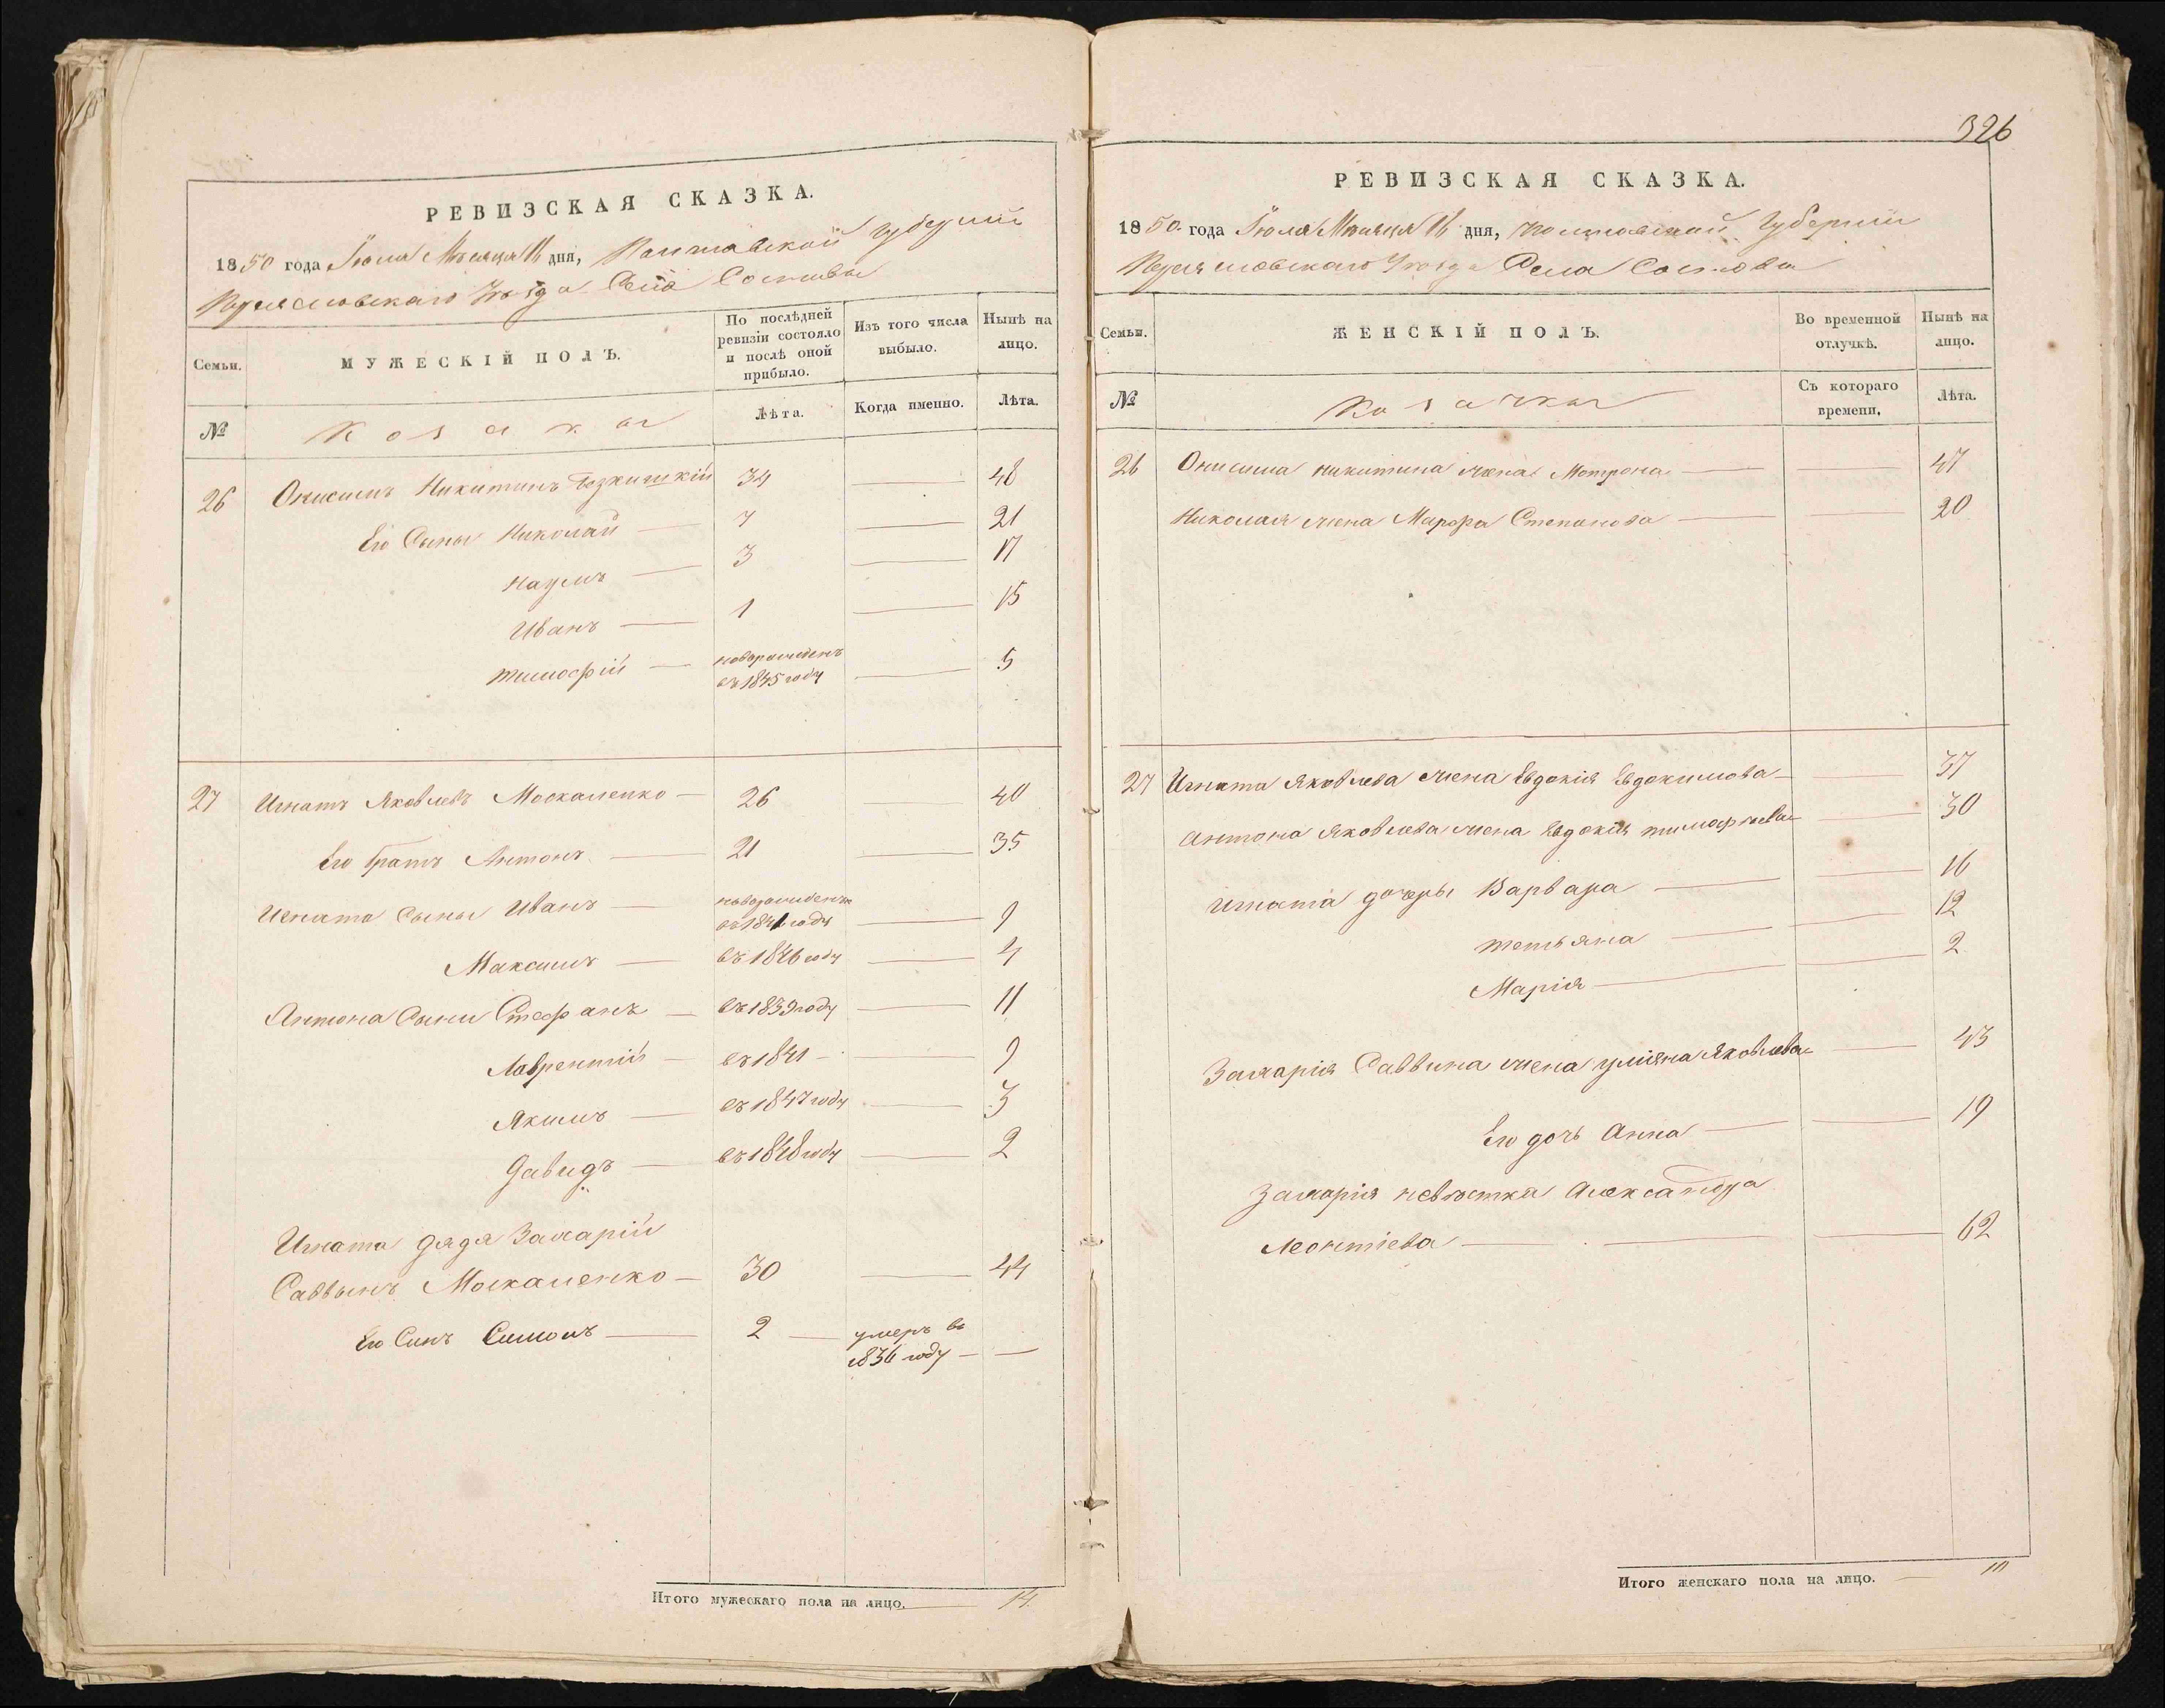 РЕВИЗСКАЯ СКАЗКА.
1850 года Июля Месяца 16 дня, Полтавской Губернии
Переясловскаго Уезда Села Сосновы
Семьи.
МУЖЕСКІЙ ПОЛЪ.
По послѣдней ревизіи состояло и послѣ оной прибыло.
Изъ того числа выбыло.
Нынѣ на лицо.
№
Козаки
Лѣта.
Когда именно.
Лѣта.
26 Онисимъ Никитинъ 34 — 48
Его Сыны Николай — 7 — 21
Наумъ — 3 — 17
Иванъ — 1 — 15
Тимофій — новорожденъ въ 1845 году — 5
27 Игнатъ Яковлевъ Москаленко — 26 — 40
Его братъ Антонъ — 21 — 35
Игната Сыны Иванъ — новорожденъ въ 1841 году — 9
Максимъ — въ 1846 году — 4
Антона Сыны Стефанъ — въ 1839 году — 11
Лаврентій — въ 1841 — 9
Якимъ — въ 1847 году — 3
Давидъ — въ 1848 году — 2
Игната дядя Захарій
Саввынъ Москаленко — 30 — 44
Его Синъ Симонъ — 2 — умеръ въ
1836 году — —
Итого мужескаго пола на лицо. — 14.
326
РЕВИЗСКАЯ СКАЗКА.
1850 года Июля Месяца 16 дня, Полтавской Губернии
Переясловскаго Уезда Села Сосновы
Семьи.
ЖЕНСКІЙ ПОЛЪ.
Во временной отлучкѣ.
Нынѣ на лицо.
№
Козачки
Съ котораго времени.
Лѣта.
26 Онисима Никитина жена Мотрона — — 47
Николая жена Марфа Степанова — — 20
27 Игната Яковлева жена Евдокія Евдокимова — 37
Антона Яковлева жена Евдокія Тимофѣева — 30
Игната дочеры Варвара — — 16
Тетьяна — — 12
Марія — — 2
Захарія Саввина жена Улияна Яковлева — 43
Его дочь Анна — — 19
Захарія невѣстка Александра
Леонтіева — — — 62
Итого женскаго пола на лицо. — 10